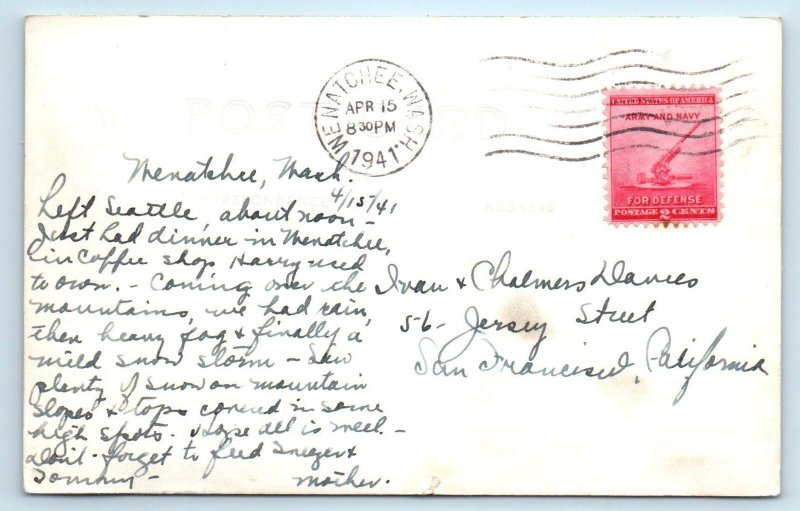 WENATCHEE, WASH.
APR 15
8 30 PM
1941
UNITED STATES OF AMERICA
ARMY AND NAVY
FOR DEFENSE
POSTAGE 2 CENTS
POST CARD
ADDRESS
Wenatchee, Wash.
4/15/41
Left Seattle, about noon -
Just had dinner in Wenatchee,
in coffee shop Harry used
to own. - Coming over the
mountains, we had rain,
then heavy fog & finally a
mild snow storm - Saw
plenty of snow on mountain
slopes & tops covered in some
high spots. Hope all is well. -
Don't forget to feed &
Tommy -
Mother.
Ivan & Chalmers Davies
56 - Jersey Street
San Francisco, California